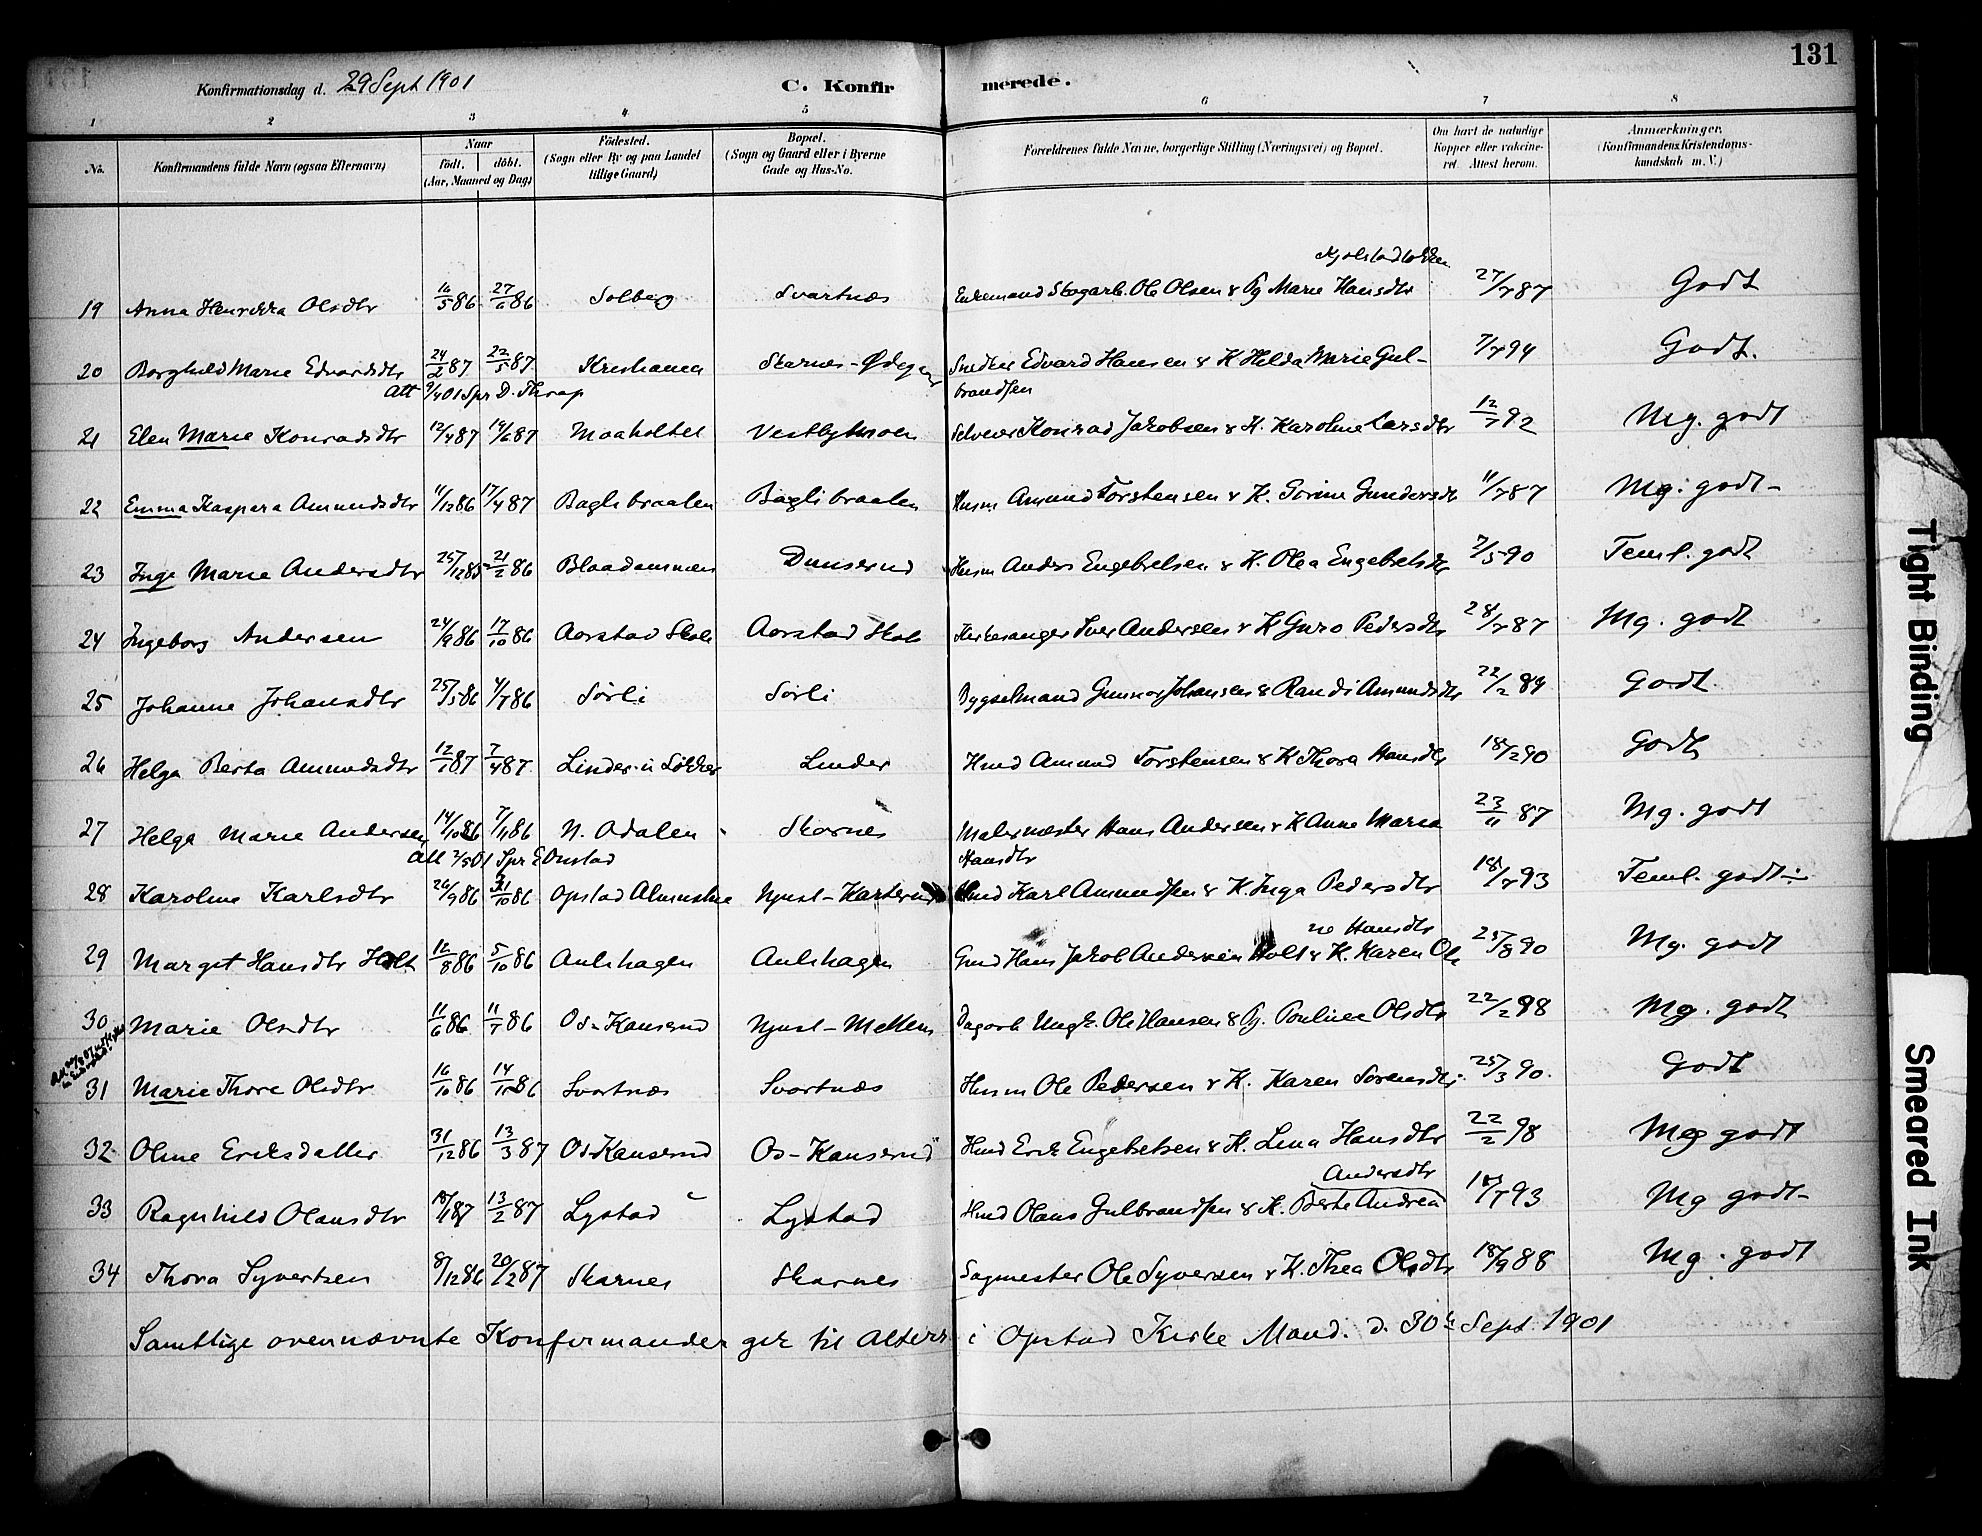 131
Konfirmationsdag d. 29 Sept 1901
C. Konfirmerede.
1 2 3 4 5 6 7 8
No. Konfirmandens fulde Navn (ogsaa Efternavn) Naar födt. döbt. (Aar, Maaned og Dag) Födested. (Sogn eller By og paa Landet tillige Gaard) Bopæl. (Sogn og Gaard eller i Byerne Gade og Hus-No. Forældrenes fulde Navne, borgerlige Stilling (Næringsvei) og Bopæl. Om havt de naturlige Kopper eller vaccineret. Attest herom. Anmærkninger. (Konfirmandens Kristendomskundskab m. V.)
19 Anna Olsdtr 16/5 86 27/6 86 Solberg Svartnæs Enkemand Skogarb. Ole Olsen & Pg Marie Hansdtr 27/7 87 Godt
20 Borghild Marie Edvardsdtr 24/2 87 22/5 87 Kristiania Skarnes-Ødegaard Snedker Edvard Hansen & K Hilda Marie Gulbrandsen 7/7 94 Godt.
21 Elen Marie Konradsdtr 12/4 87 19/6 87 Vestbymoen Selveier Konrad Jakobsen & K. Karoline Larsdtr 12/7 92 Mg. godt
22 Emma Kaspara Amundsdtr 11/12 86 17/4 87 Baglibraaten Baglibraaten Husm Amund Torstensen & K. Gundersdtr 11/7 87 Mg. godt
23 Inga Marie Andersdtr 25/12 85 21/2 86 Blaadammen Dunserud Husm Anders Engebretsen & K. Olea Engebretsdtr 7/5 90 Teml. godt
24 Ingeborg Andersen 24/9 86 17/10 86 Aorstad Skole Aorstad Skole Kirkesanger Iver Andersen & K Guro Pedersdtr 28/7 87 Mg. godt
25 Johanne Johansdtr 25/5 86 4/7 86 Sörli Sörli Bygselmand Gunnar Johansen & Randi Amundsdtr 22/2 89 Godt
26 Helga Berta Amundsdtr 12/1 87 7/4 87 Linder Linder Hmd Amund Torstensen & K Thora Hansdtr 18/2 90 Godt
27 Helga Marie Andersen 14/10 86 7/11 86 N. Odalen Skarnes Malermester Hans Andersen & K Anne Maria Hansdtr 23/11 87 Mg. godt
28 Karoline Karlsdtr 26/9 86 31/10 86 Opstad Karterud Hmd Karl Amundsen & K. Inga Pedersdtr 18/7 93 Teml. godt
29 Margit Hansdtr Holt 12/8 86 5/10 86 Aulshagen Aulshagen Gmd Hans Jakob Andersen Holt & K. Karen Oline Hansdtr 25/8 90 Mg. godt
30 Marie Olsdtr 11/6 86 11/7 86 Os-Kanserud Ungk. Ole Hansen & Pg. Pauline Olsdtr 22/2 88 Mg. godt
31 Marie Thore Olsdtr 16/10 86 14/11 86 Svartnæs Svartnæs Husm Ole Pedersen & K. Karen Sorensdtr 25/3 90. Godt
32 Oline Eriksdatter 31/12 86 13/3 87 Os-Kanserud Os-Kanserud Hmd Erik Engebretsen & K. Lina Hansdtr 22/2 98 Mg godt
33 Ragnhild Olausdtr 18/1 87 13/2 87 Lystad Lystad Hmd Olaus Gulbrandsen & K. Berte Andrea Andersdtr 18/7 93 Mg godt
34 Thora Syvertsen 8/12 86 20/2 87 Skarnes Skarnes Sagmester Ole Syversen & K. Thea Olsdtr 18/9 88 Mg. godt
Samtlige ovennævnte Konfirmander gik til Alters i Opstad Kirke Mand. d. 30te Sept 1901
Tight Binding
Smeared Ink